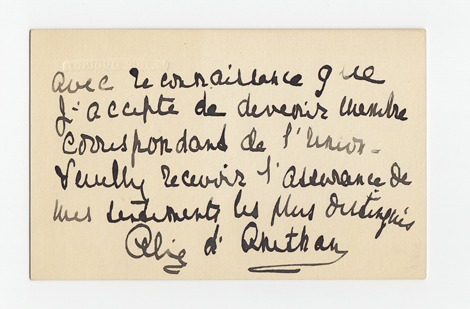 avec reconnaissance que
j'accepte de devenir membre
correspondant de l'Union-
Veuillez recevoir l'assurance de
mes sentiments les plus distingués
Alix d'Anethan